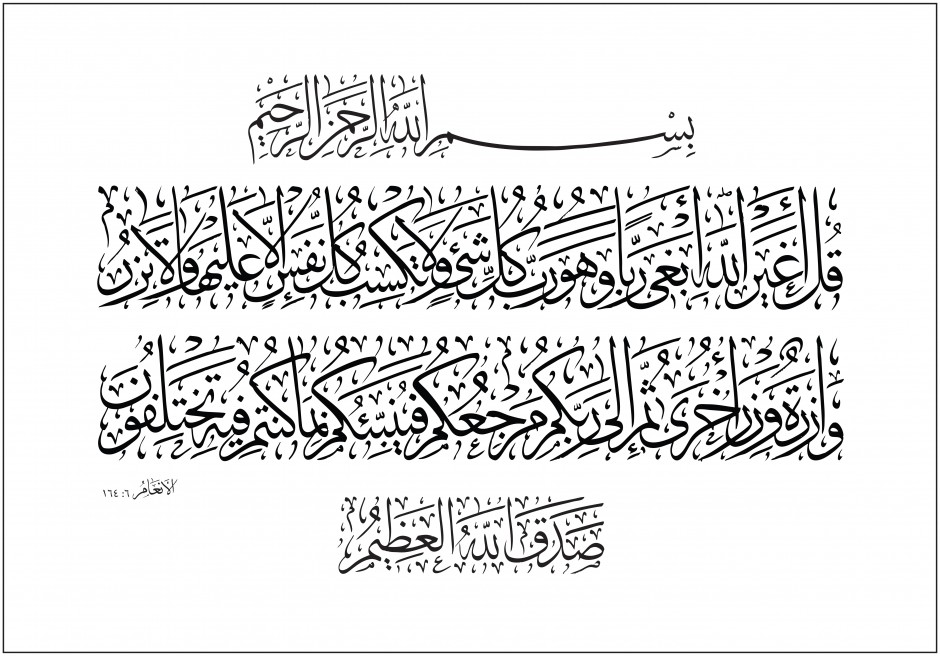 بِسْمِ اللَّهِ الرَّحْمَٰنِ الرَّحِيمِ
قُلْ أَغَيْرَ اللَّهِ أَبْغِي رَبًّا وَهُوَ رَبُّ كُلِّ شَيْءٍ وَلَا تَكْسِبُ كُلُّ نَفْسٍ إِلَّا عَلَيْهَا وَلَا تَزِرُ
وَازِرَةٌ وِزْرَ أُخْرَى ثُمَّ إِلَى رَبِّكُمْ مَرْجِعُكُمْ فَيُنَبِّئُكُمْ بِمَا كُنْتُمْ فِيهِ تَخْتَلِفُونَ
الأَنْعَامُ ٦: ١٦٤
صَدَقَ اللَّهُ الْعَظِيمُ